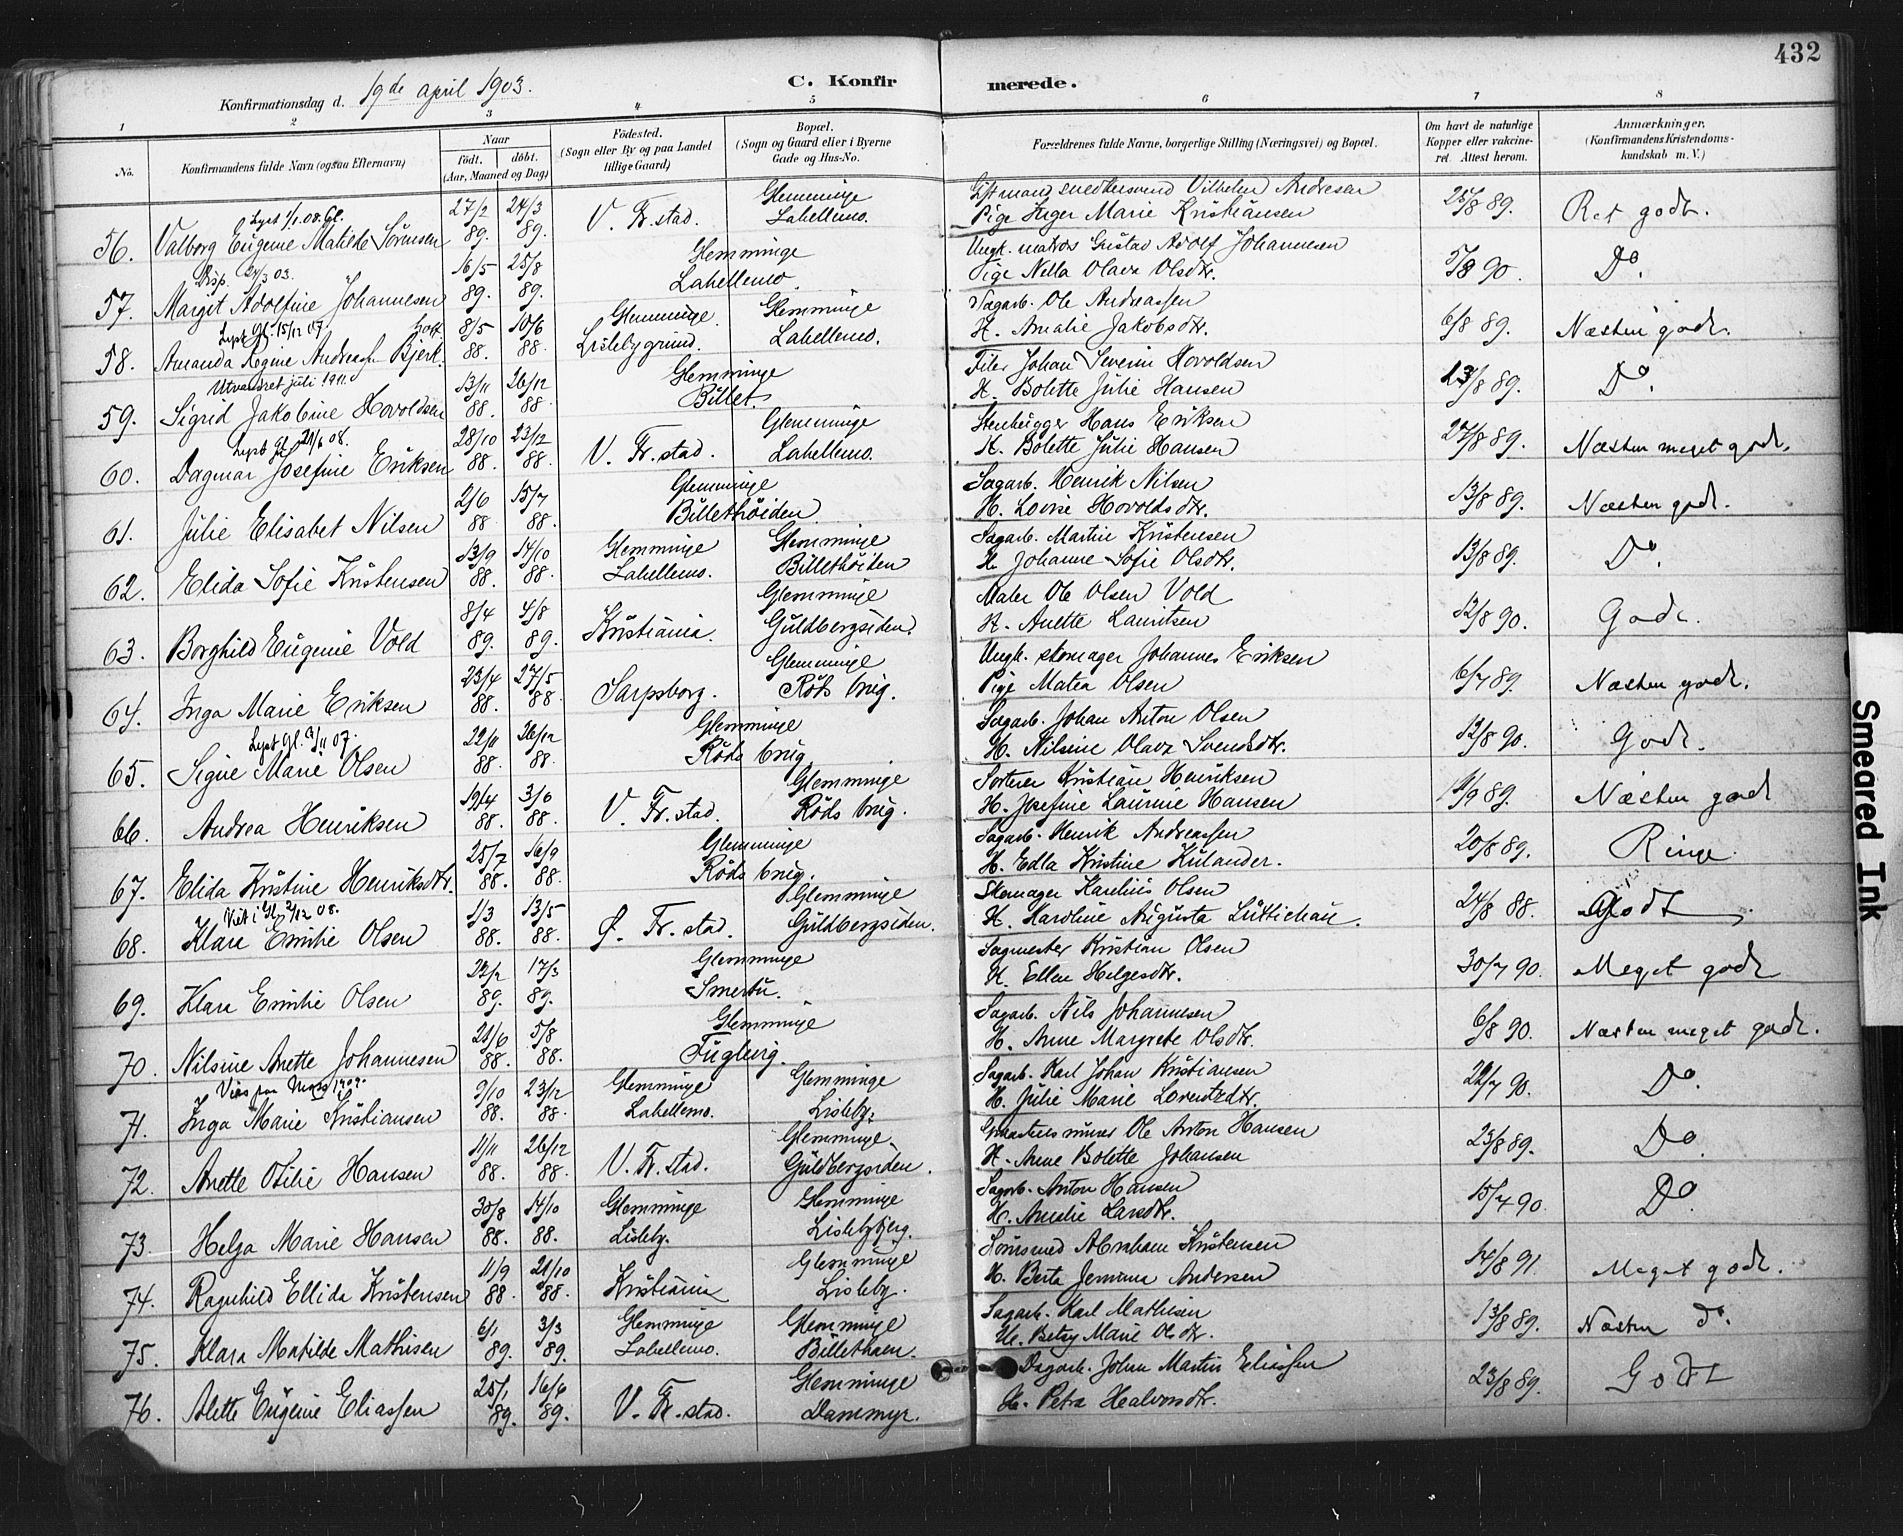 432
Konfirmationsdag d. 19de april 1903.
C. Konfirmerede.
1 2 3 4 5 6 7 8
No. Konfirmandens fulde Navn (ogsaa Efternavn) Naar født. døbt. (Aar, Maaned og Dag) Fødested. (Sogn eller By og paa Landet tillige Gaard) Bopæl. (Sogn og Gaard eller i Byerne Gade og Hus-No. Forældrenes fulde Navne, borgerlige Stilling (Næringsvei) og Bopæl. Om havt de naturlige Kopper eller vakcineret. Attest herom. Anmærkninger. (Konfirmandens Kristendomskundskab m. V.)
Lyst 1/1.08. Gl.
56. Valborg Eugenie Matilde Sørensen 27/2 89. 24/3 89. V. Fr.stad. Glemminge Labellemo. Gift mand smedsvend Vilhelm Andresen Pige Inger Marie Kristiansen 25/8 89. Ret godt.
Disp. 03.
57. Margit Adolfine Johannesen 16/5 89. 25/8 89. Glemminge Labellemo. Ungk. matros Gustav Adolf Johannesen Pige Nella Olava Olsdtr. 5/8 90. Do.
Lyst Gl. 15/12 07.
58. Amanda Regine Andreassen Bjerk. 8/5 88. 10/6 88. Glemminge Lislebygrund. Glemminge Labellemo. Sagarb. Ole Andreassen H. Amalie Jakobsdtr. 6/8 89. Næsten godt.
Utvandret juli 1911.
59. Sigrid Jakobine Hovoldsen 13/11 88. 26/12 88 Glemminge Billet. Filer Johan Severin Hovoldsen H. Bolette Julie Hansen 23/8 89. Do.
Lyst Gl. 21/6 08.
60. Dagmar Josefine Eriksen 28/10 88. 23/12 88 V. Fr.stad. Glemminge Labellemo. Stenhugger Hans Eriksen H. Bolette Julie Hansen 27/8 89. Næsten meget godt.
61. Julie Elisabet Nilsen 2/6 88 15/7 88. Glemminge Billethöiden Sagarb. Henrik Nilsen H. Lovise Hovoldsdtr. 13/8 89. Næsten godt.
62. Elida Sofie Kristensen 13/9 88. 14/10 88. Glemminge Labellemo. Glemminge Billethöiden Sagarb. Martin Kristensen H. Johanne Sofie Olsdtr. 13/8 89. Do.
63. Borghild Eugenie Vold 8/4 89. 4/8 89. Kristiania. Glemminge Guldbergsiden. Maler Ole Olsen Vold H. Anette Lauritsen 12/8 90. Godt.
64. Inga Marie Eriksen 23/4 88. 27/5 88. Sarpsborg. Glemminge Röds brug. Ungk. skomager Johannes Eriksen Pige Matea Olsen 6/7 89. Næsten godt.
Lyst Gl. 3/11 07.
65. Signe Marie Olsen 22/11 88. 26/12 88. Glemminge Röds brug Sagarb. Johan Anton Olsen H. Nilsine Olava Svendsdtr. 12/8 90. Godt.
66. Andrea Henriksen 19/4 88. 3/6 88. V. Fr.stad. Glemminge Röds brug. Sorterer Kristian Henriksen H. Josefine Laurine Hansen 11/9 89. Næsten godt
67. Elida Kristine Henriksdtr. 25/7 88. 16/9 88. Glemminge Röds brug. Sagarb. Henrik Andreassen H. Edla Kristine Kulander. 20/8 89. Ringe.
Viet i Gl. 2/12 08.
68. Klara Emilie Olsen 1/3 88. 13/5 88. Ø. Fr.stad. Glemminge Guldbergsiden. Skomager Karelius Olsen H. Karoline Augusta Lüttichau. 24/8 88. Godt
69. Klara Emilie Olsen 22/2 89. 17/3 89. Glemminge Smertu. Sagmester Kristian Olsen H. Ellen Helgesdtr. 30/7 90. Meget godt
70. Nilsine Anette Johannesen 21/6 88. 5/8 88. Glemminge Fuglevig. Sagarb. Nils Johannesen H. Anne Margrete Olsdtr. 6/8 90. Næsten meget godt.
71. Inga Marie Kristiansen 9/10 88. 23/12 88. Glemminge Labellemo. Glemminge Lisleby. Sagarb. Karl Johan Kristiansen H. Julie Marie Lorentzdtr. 22/7 90. Do.
72. Anette Otilie Hansen 11/11 88. 26/12 88. V. Fr.stad. Glemminge Guldbergsiden. Graastensminer Ole Anton Hansen H. Anne Bolette Johansen 23/8 89. Do.
73. Helga Marie Hansen 30/8 88. 14/10 88. Glemminge Lisleby. Glemminge Lislebybjerg. Sagarb. Anton Hansen H. Amalie Larsdtr. 15/7 90. Do.
74. Ragnhild Ellida Kristensen 11/9 88. 21/10 88. Kristiania Glemminge Lisleby. Abraham Kristensen H. Berta Jemima Andersen 14/8 91. Meget godt.
75. Klara Matilde Mathisen 6/1 89. 3/3 89. Glemminge Labellemo. Glemminge Billethaen. Sagarb. Karl Mathisen H. Betsy Marie Olsdtr. 13/8 89. Næsten Do.
76. Alette Eugenie Eliassen 25/1 89. 16/6 89. V. Fr.stad. Glemminge Dammyr. Dagarb. Johan Martin Eliassen H. Petra Halvorsdtr. 23/8 89. Godt
Smeared Ink